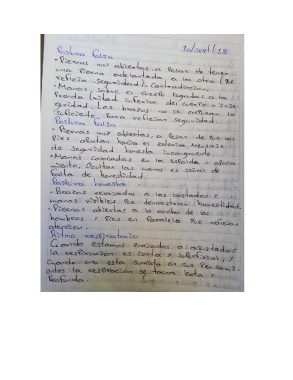 Postura falsa 20/sept/18
- Piernas muy abiertas a pesar de tener
una pierna adelantada a la otra (no
refleja seguridad). Contradicción.
- Manos sobre el cuerpo pegadas a la
prenda (mitad inferior del cuerpo = inse-
guridad. Los brazos no se activan lo
suficiente para reflejar seguridad.
Postura falsa
- Piernas muy abiertas, a pesar de que los
pies apuntan hacia el exterior. Mensaje
de seguridad honesta incongruente.
- Manos colocadas en la espalda
Ocultar las manos es señal de
falta de honestidad.
Postura honesta.
- Brazos a los costados,
manos visibles que demuestran honestidad.
- Piernas abiertas a lo ancho de los
hombros y pies en paralelo que reflejan
atención.
Ritmo respiratorio
Cuando estamos enojados o asustados
la respiración es corta y superficial, y
cuando uno esta sumido en sus pensami-
entos la respiración se torna lenta y
profunda.